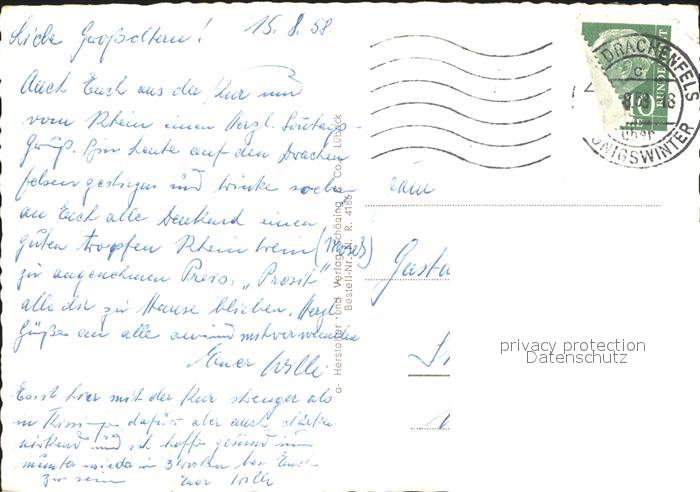 Liebe Großeltern! 15.8.58
Auch Euch aus der Kur und
vom Rhein einen Herzl. Sonntags-
gruß. Bin heute auf den Drachen
felsen gestiegen und trinke soeben
an Euch alle denkend einen
guten Tropfen Rheinwein (Mosel)
zu angenehmen Preis. „Prosit"
alle die zu Hause blieben. Herzl
Grüße an alle
Euer Willi
Es ist hier mit der Kur strenger als
in Kissingen dafür aber auch stärker
wirkend und ich hoffe gesund und
munter wieder in 3 Wochen bei Euch
zu sein Euer Willi
a- Hersteller- und Verlag Schöning & Co., Lübeck
Bestell-Nr. R. 4186
DRACHENFELS
KÖNIGSWINTER
c
BUNDESPOST
Fam
Gast
privacy protection
Datenschutz